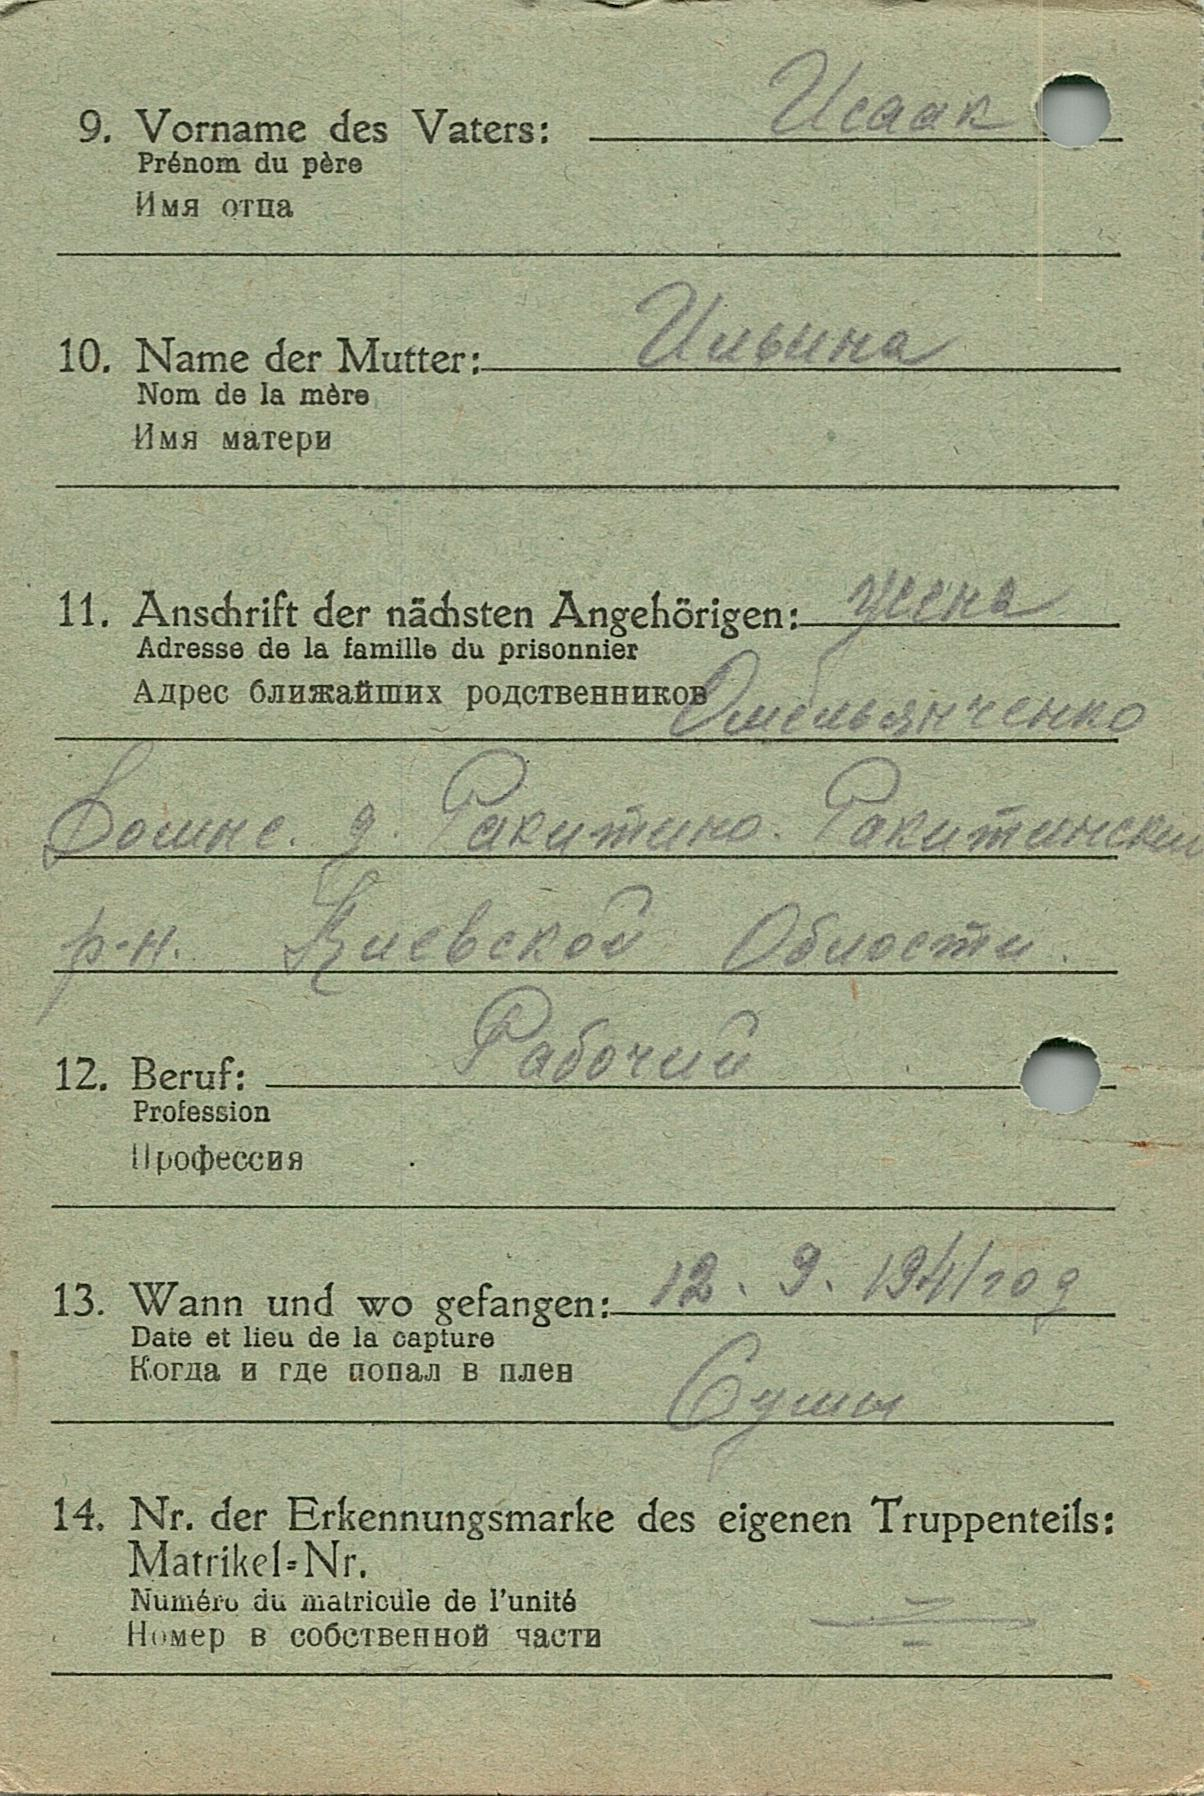 9. Vorname des Vaters: Исаак
Prénom du père
Имя отца
10. Name der Mutter: Ильина
Nom de la mère
Имя матери
11. Anschrift der nächsten Angehörigen: жена
Adresse de la famille du prisonnier
Адрес ближайших родственников Омельянченко
д. Ракитино. Ракитински
р-н. Киевской Области.
12. Beruf: Рабочий
Profession
Профессия
13. Wann und wo gefangen: 12. 9. 1941 год
Date et lieu de la capture
Когда и где попал в плен
Сумы
14. Nr. der Erkennungsmarke des eigenen Truppenteils:
Matrikel-Nr.
Numéro du matricule de l'unité
Номер в собственной части